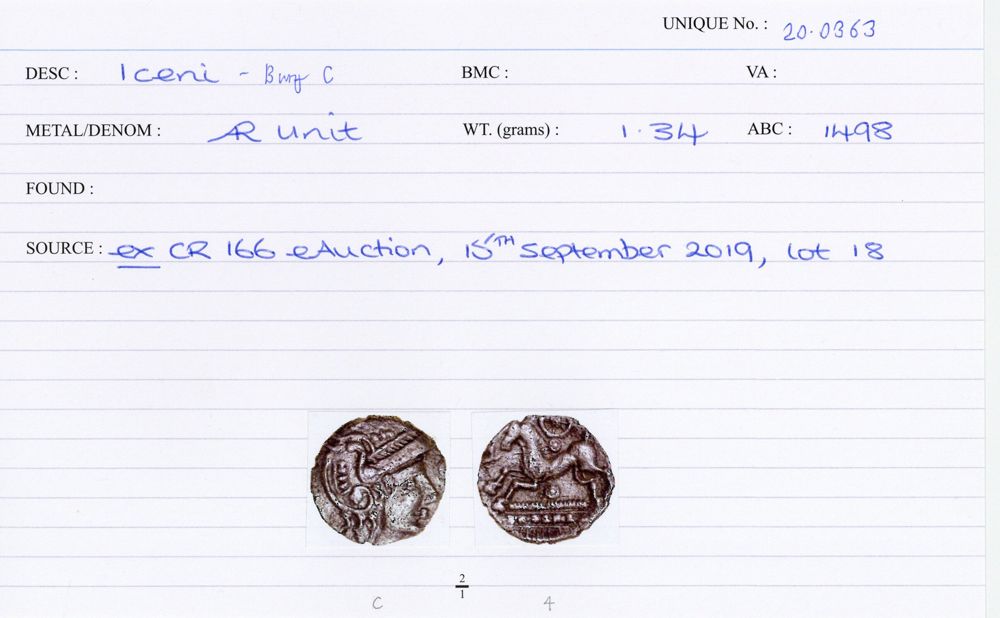 UNIQUE No. : 20.0363
DESC : Iceni - Bury C BMC : VA :
METAL/DENOM : AR Unit WT. (grams) : 1.34 ABC : 1498
FOUND :
SOURCE : ex CR 166 eAuction, 15TH September 2019, lot 18
2
1
C 4